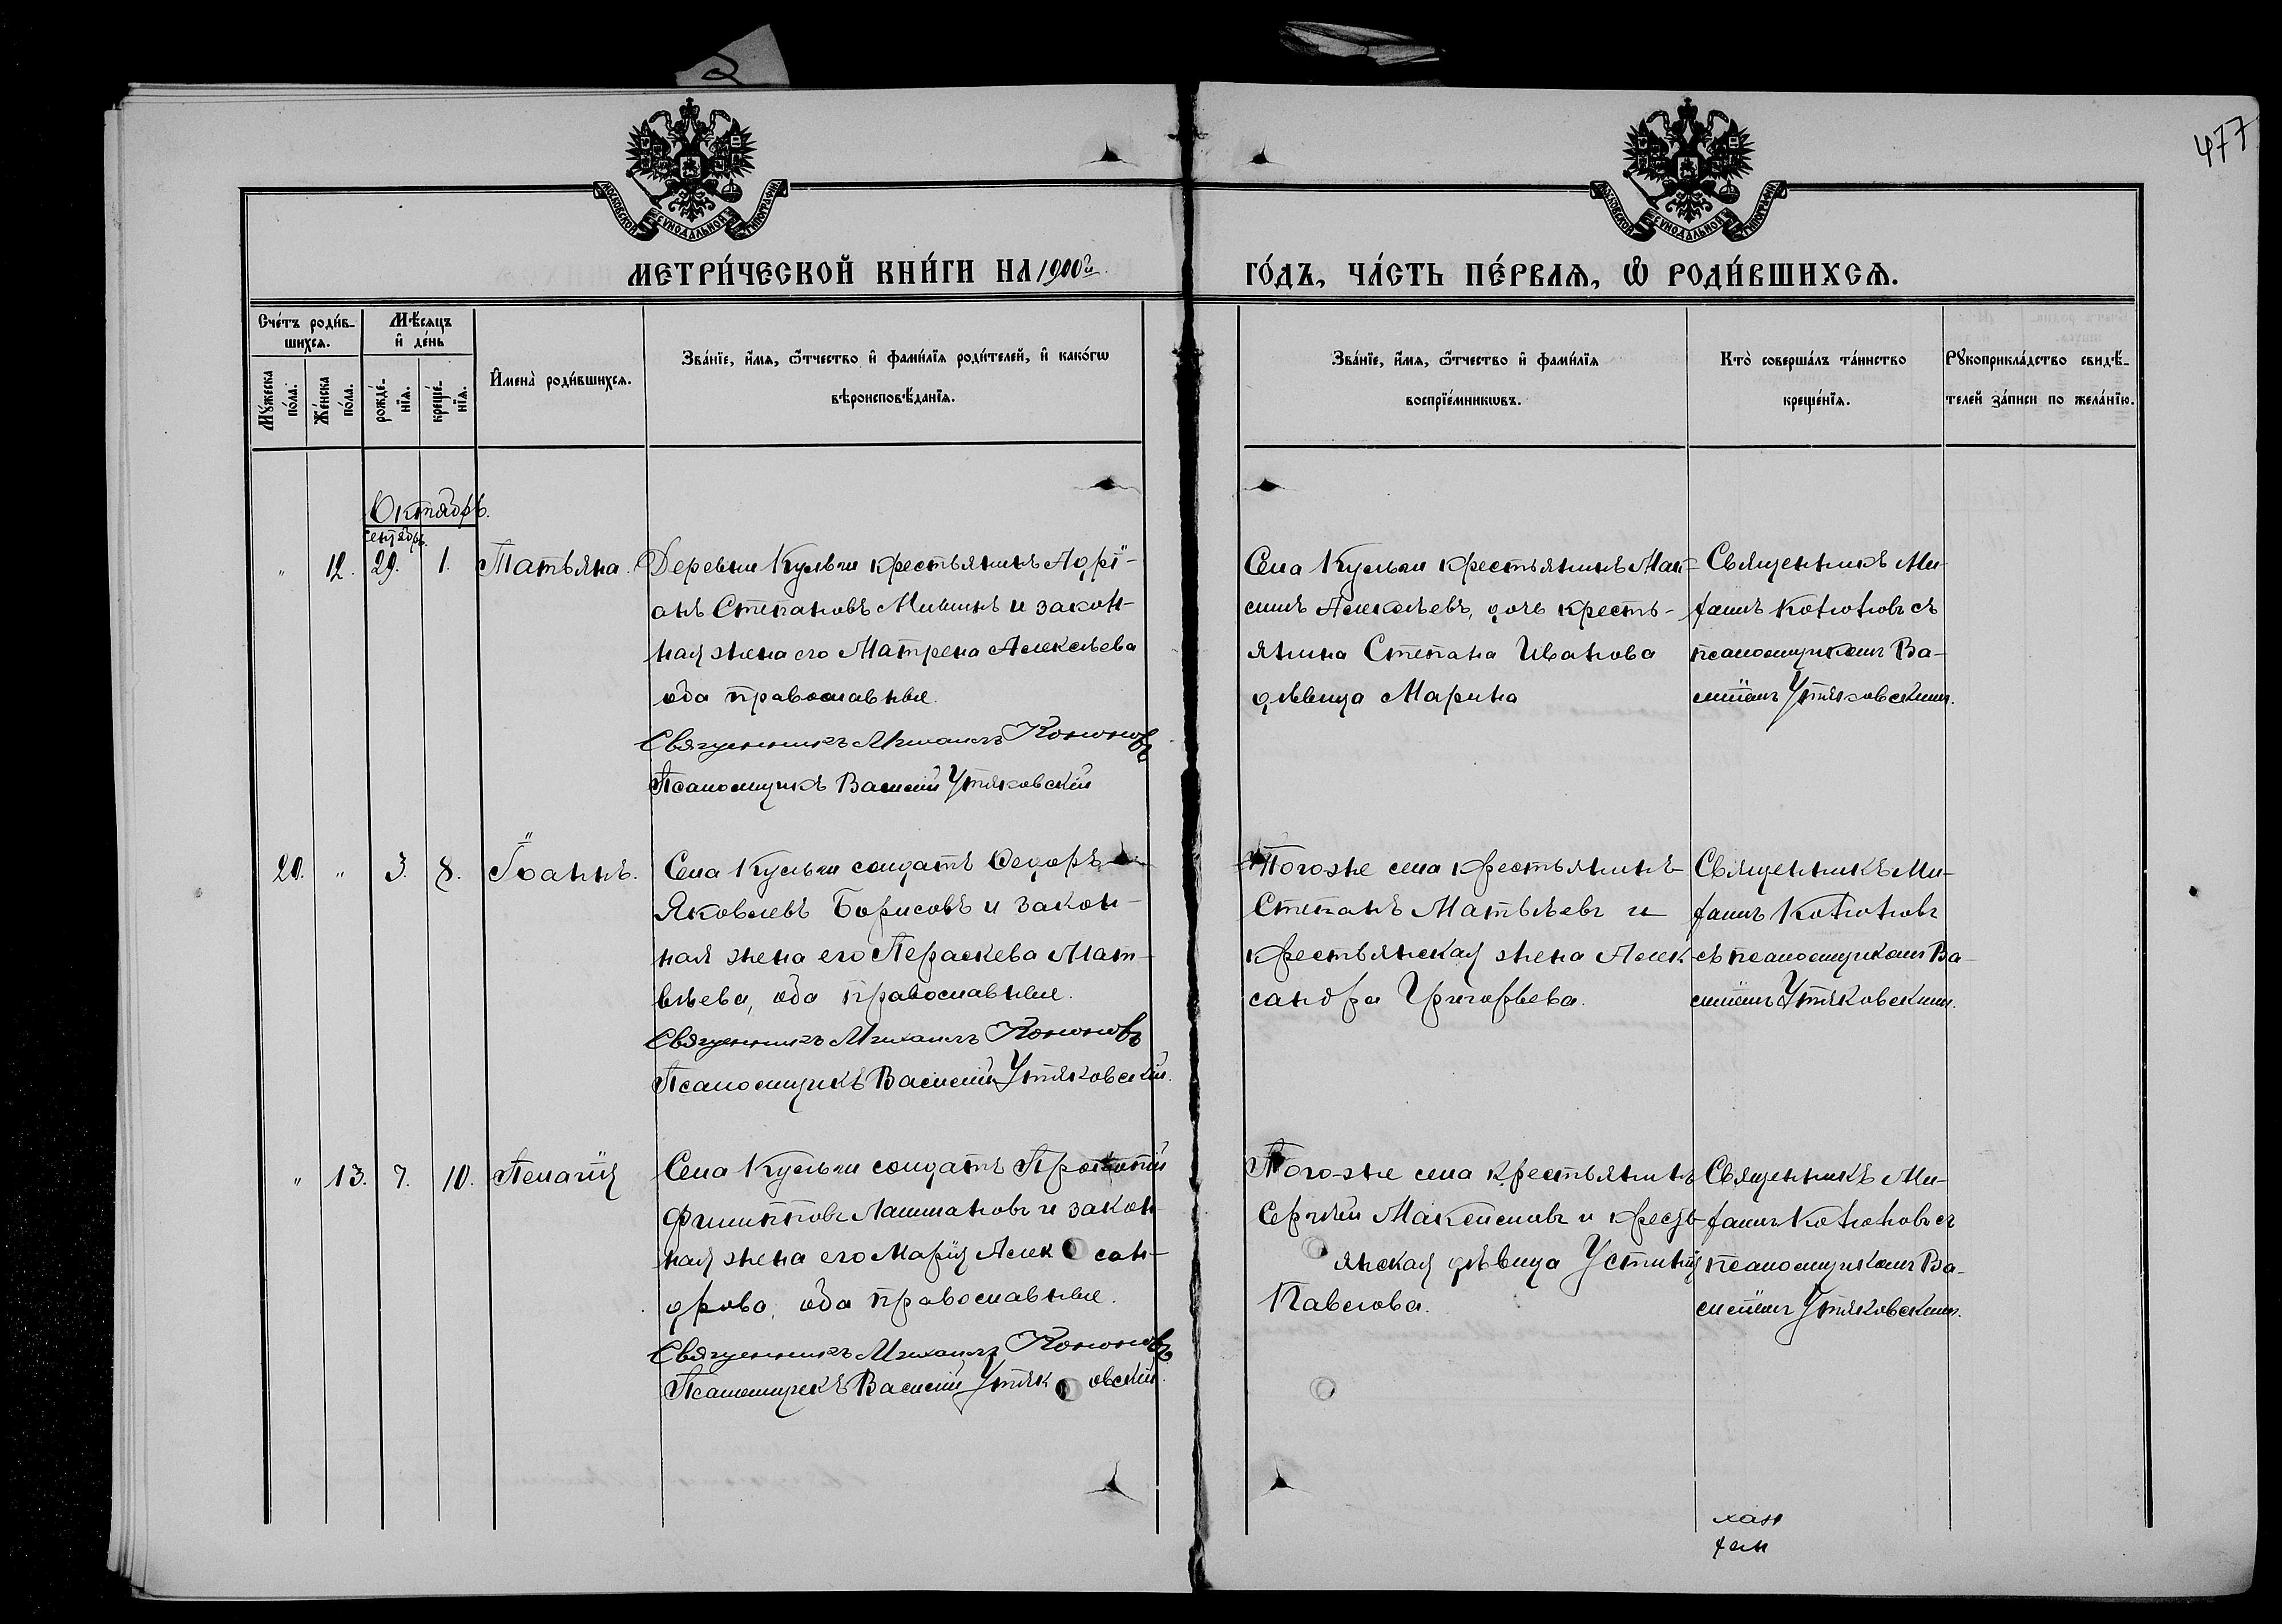 477
МОСКОВСКОЙ СУНОДАЛЬНОЙ ТИПОГРАФІИ
МОСКОВСКОЙ СУНОДАЛЬНОЙ ТИПОГРАФІИ
МЕТРИ́ЧЕСКОЙ КНИ́ГИ НА 1900й
ГО́ДЪ, ЧА́СТЬ ПЕ́РВАѦ, Ѡ҆ РОДИ́ВШИХСѦ.
Сче́тъ роди́в-
шихсѧ.
Мѣ́сѧцъ
и҆ де́нь
Мꙋ́жеска
по́ла.
Же́нска
по́ла.
рожде́-
нїѧ.
креще́-
нїѧ.
И҆мена̀ роди́вшихсѧ.
Зва́нїе, и҆́мѧ, ѻ҆́тчество и҆ фами́лїѧ роди́телей, и҆ како́гѡ
вѣроисповѣ́данїѧ.
Зва́нїе, и҆́мѧ, ѻ҆́тчество и҆ фами́лїѧ
воспрїе́мникѡвъ.
Кто̀ соверша́лъ та́инство
креще́нїѧ.
Рꙋкоприкла́дство свидѣ́-
телей за́писи по жела́нїю.
Октябрь.
сентябрь.
" 12. 29. 1. Татьяна.
Деревни Кульги крестьянинъ Адрі-
анъ Степановъ и закон-
ная жена его Матрена Алексѣева
оба православные.
Священникъ Михаилъ Кононовъ
Псаломщикъ Василій Утяковскій
Села Кульги крестьянинъ Мак-
симъ Алексѣевъ, дочь кресть-
янина Степана Иванова
дѣвица Марина
Священникъ Ми-
хаилъ Кононовъ съ
псаломщикомъ Ва-
силіемъ Утяковскимъ.
20. " 3. 8. Іоаннъ.
Села Кульги солдатъ Ѳедоръ
Яковлевъ Борисовъ и закон-
ная жена его Пераскева Мат-
вѣева, оба православные.
Священникъ Михаилъ Кононовъ
Псаломщикъ Василій Утяковскій.
Того-же села крестьянинъ
Степанъ Матвѣевъ и
крестьянская жена Алек-
сандра Григорьева.
Священникъ Ми-
хаилъ Кононовъ
съ псаломщикомъ Ва-
силіемъ Утяковскимъ.
" 13. 7. 10. Пелагія
Села Кульги солдатъ Прокопій
Филипповъ и закон-
ная жена его Марія Алексан-
дрова, оба православные.
Священникъ Михаилъ Кононовъ
Псаломщикъ Василій Утяковскій.
Того-же села крестьянинъ
Сергѣй и кресть-
янская дѣвица Устинія
Павлова.
Священникъ Ми-
хаилъ Кононовъ съ
псаломщикомъ Ва-
силіемъ Утяковскимъ.